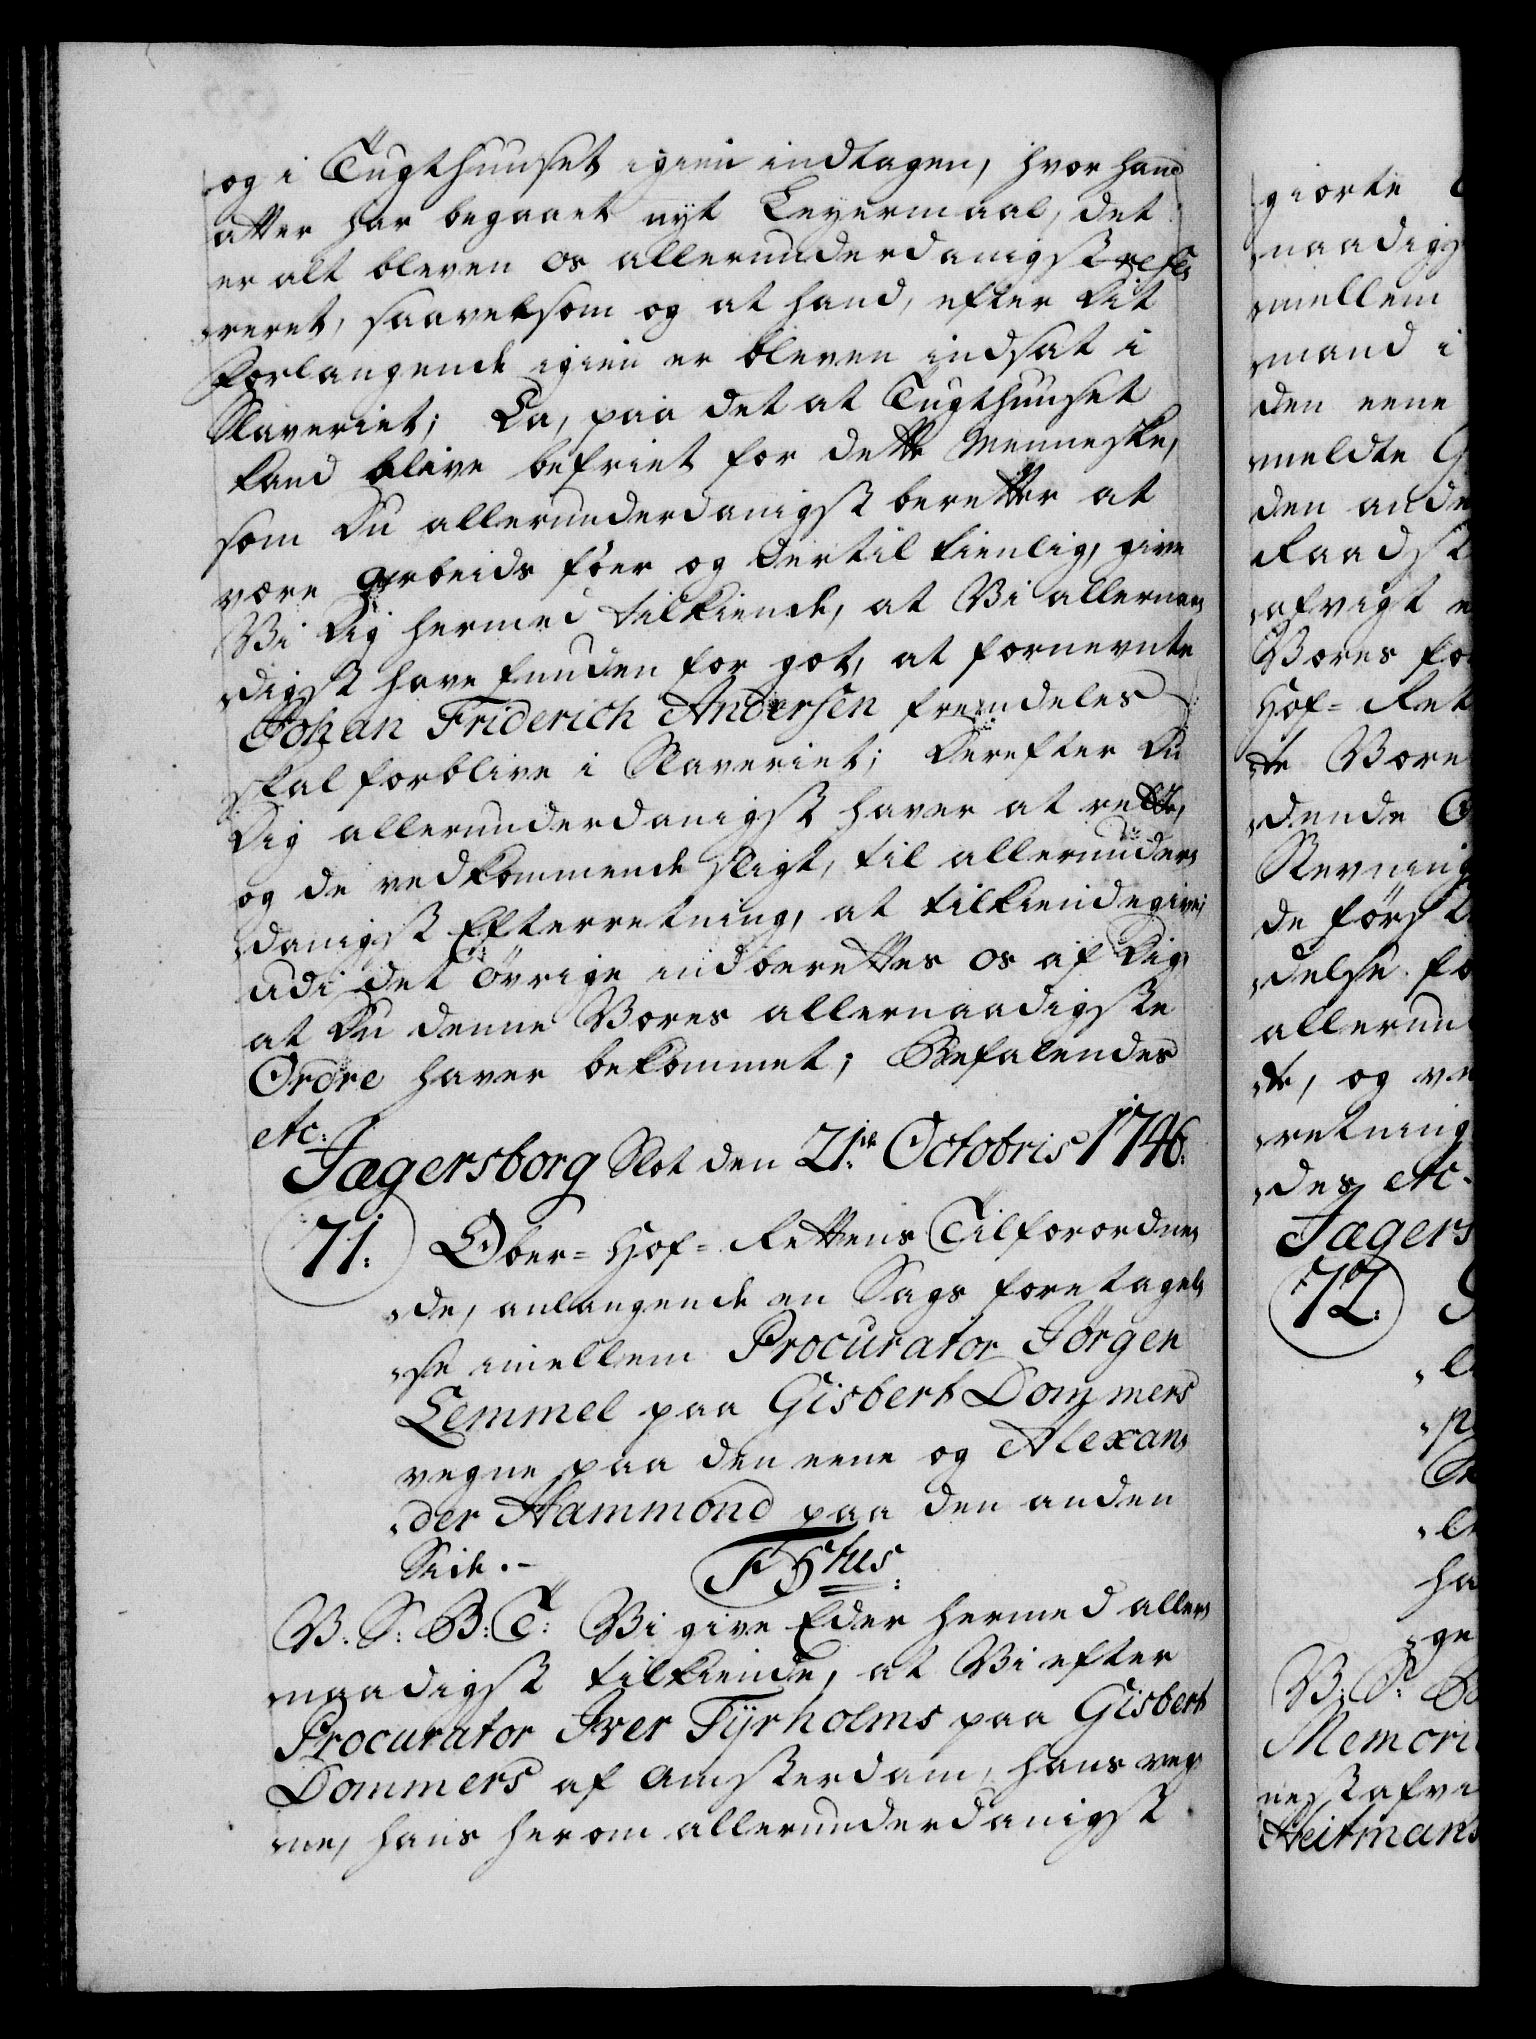 og i Tugthuuset igien indtagen, hvor hand
atter har begaaet nyt Leyermaal, det
er alt bleven os allerunderdanigst refe-
reret, saavelsom og at hand, efter dit
Forlangende igien er bleven indsat i
Slaveriet; Da, paa det at Tugthuuset
kand blive befriet for dette Menneske,
som du allerunderdanigst beretter at
være arbeids föer og dertil tienlig, give
Vi dig hermed tilkiende, at Vi allernaa-
digst have funden for got, at fornevnte
Johan Friderich Andersen fremdeles
skal forblive i Slaveriet; Derefter du
dig allerunderdanigst haver at rette,
og de vedkommende sligt, til allerunder-
danigst Efterretning, at tilkiendegive;
udi det övrige indberettes os af dig,
at du denne Vores allernaadigste
Ordre haver bekommet; Befalendes
etc:
Jægersborg Slot den 21.de Octobris 1746.
71. Ober-Hof-Rettens Tilforordne-
de, anlangende en Sags foretagel-
se imellem Procurator Jörgen
Lemmel paa Gisbert Dommers
vegne paa den eene og Alexan-
der Hammond paa den anden
Side.-
F5tus.
V. S: B: T: Vi give Eder hermed aller-
naadigst tilkiende, at Vi efter
Procurator Iver Tÿrholms paa Gisbert
Dommers af Amsterdam, hans veg-
ne, hans herom allerunderdanigst
giorte
naadigs
mellem
mand i
den eene
meldte
den ande
Raadst
afvigt
Vores for
Hof-Ret
te Vore
dende
Stevning
de först
delse fo
allerun
de, og ve
retning
des etc.
Jægers
72.
ha
ge
V: S:
Memori
nest afvi
Heitmans